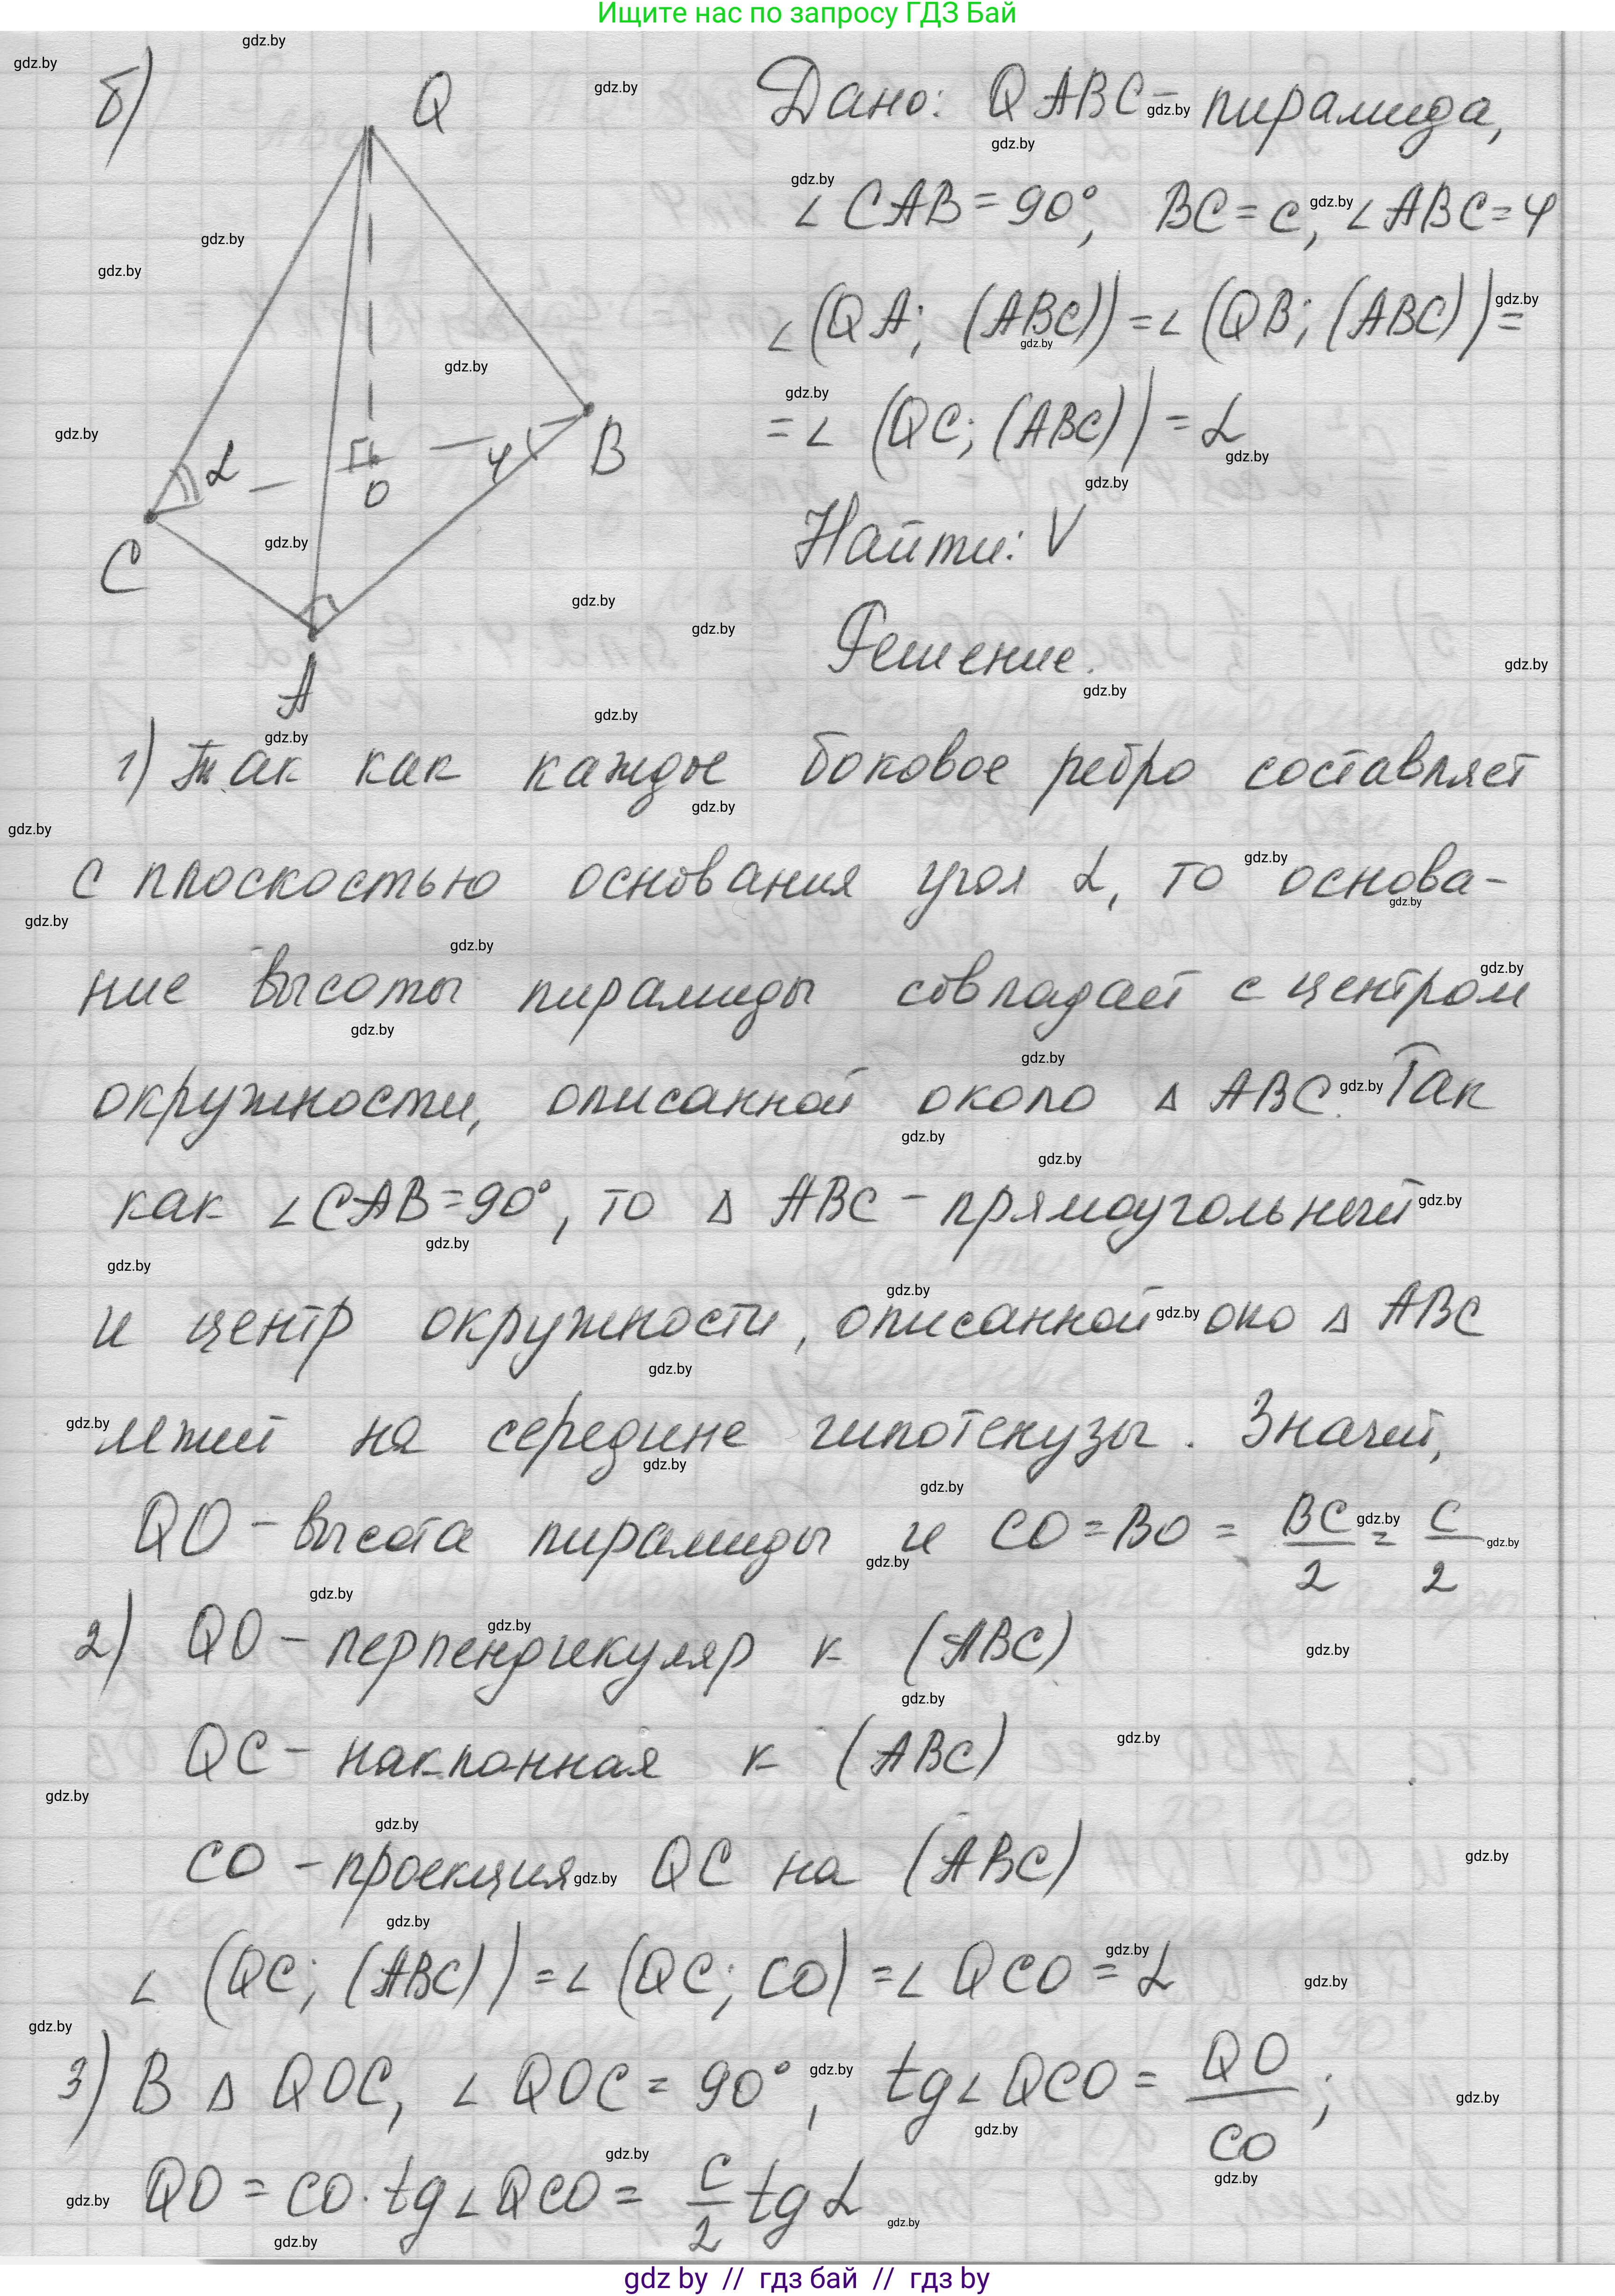 Ищите нас по запросу ГДЗ Бай
б)
Q
α
O
φ
B
C
A
Дано: QABC - пирамида,
∠CAB = 90°, BC = c, ∠ABC = φ
∠(QA; (ABC)) = ∠(QB; (ABC)) =
= ∠(QC; (ABC)) = α
Найти: V
Решение.
1) Так как каждое боковое ребро составляет
с плоскостью основания угол α, то основа-
ние высоты пирамиды совпадает с центром
окружности, описанной около △ ABC. Так
как ∠CAB = 90°, то △ ABC - прямоугольный
и центр окружности, описанной око △ ABC
лежит на середине гипотенузы. Значит,
QO - высота пирамиды и CO = BO = BC/2 = c/2
2) QO - перпендикуляр к (ABC)
QC - наклонная к (ABC)
CO - проекция QC на (ABC)
∠(QC; (ABC)) = ∠(QC; CO) = ∠QCO = α
3) В △ QOC, ∠QOC = 90°, tg∠QCO = QO/CO;
QO = CO · tg∠QCO = c/2 tg α
gdz by // гдз бай // гдз by